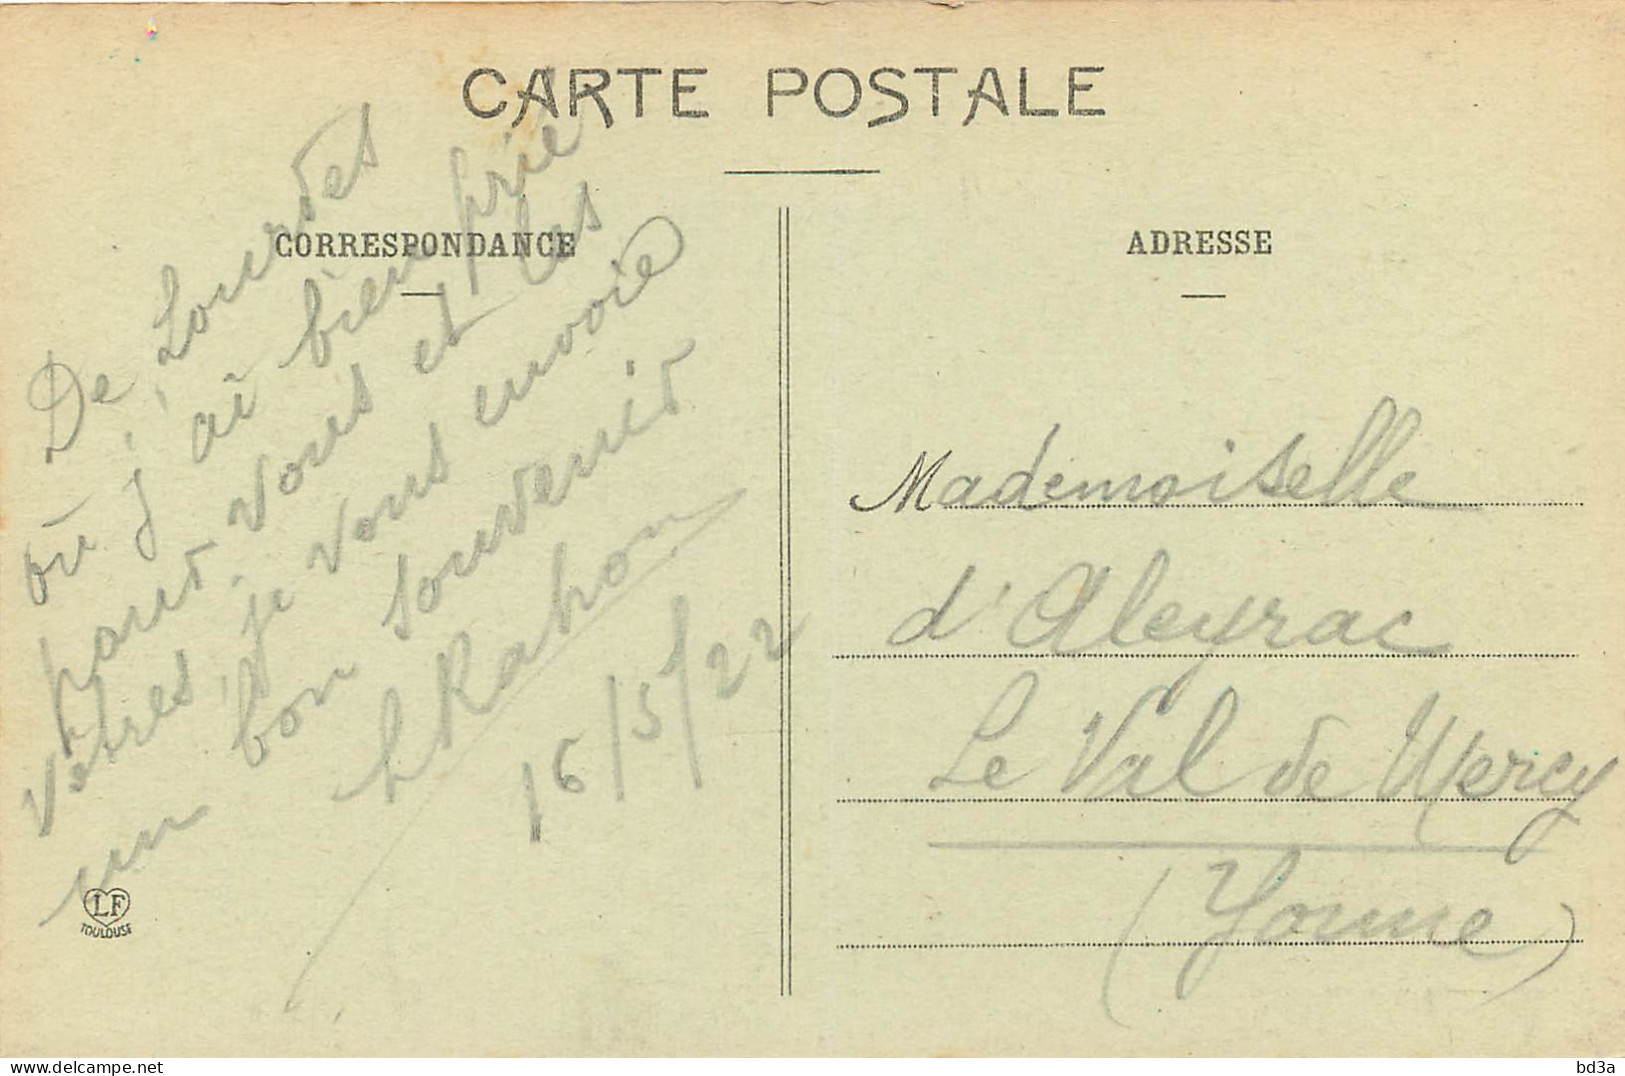 CARTE POSTALE
CORRESPONDANCE
De Lourdes
où j'ai bien prié
pour vous et les
vôtres, je vous envoie
un bon souvenir
16/5/22
LF
TOULOUSE
ADRESSE
Mademoiselle
d'Aleyrac
Le Val de Mercy
(Yonne)
delcampe.net
bd3a